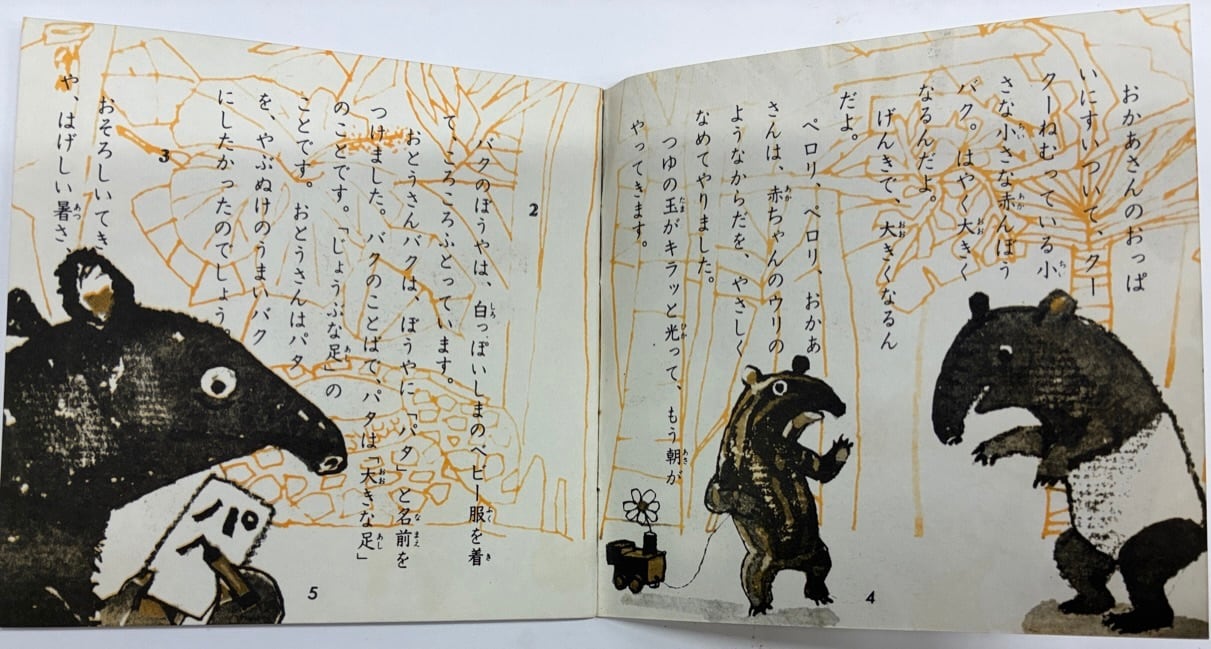 おかあさんのおっぱ
いにすいついて、クー
クーねむっている小
さな小さな赤んぼう
バク。はやく大きく
なるんだよ。
げんきで、大きくなるん
だよ。
ペロリ、ペロリ、おかあ
さんは、赤ちゃんのウリの
ようなからだを、やさしく
なめてやりました。
つゆの玉がキラッと光って、もう朝が
やってきます。
4
2
バクのぼうやは、白っぽいしまのベビー服を着
て、ころころふとっています。
おとうさんバクは、ぼうやに「パタ」と名前を
つけました。バクのことばで、パタは「大きな足」
のことです。「じょうぶな足」の
ことです。おとうさんはパタ
を、やぶぬけのうまいバク
にしたかったのでしょう。
3
おそろしいてき
や、はげしい暑さ、
パ
5